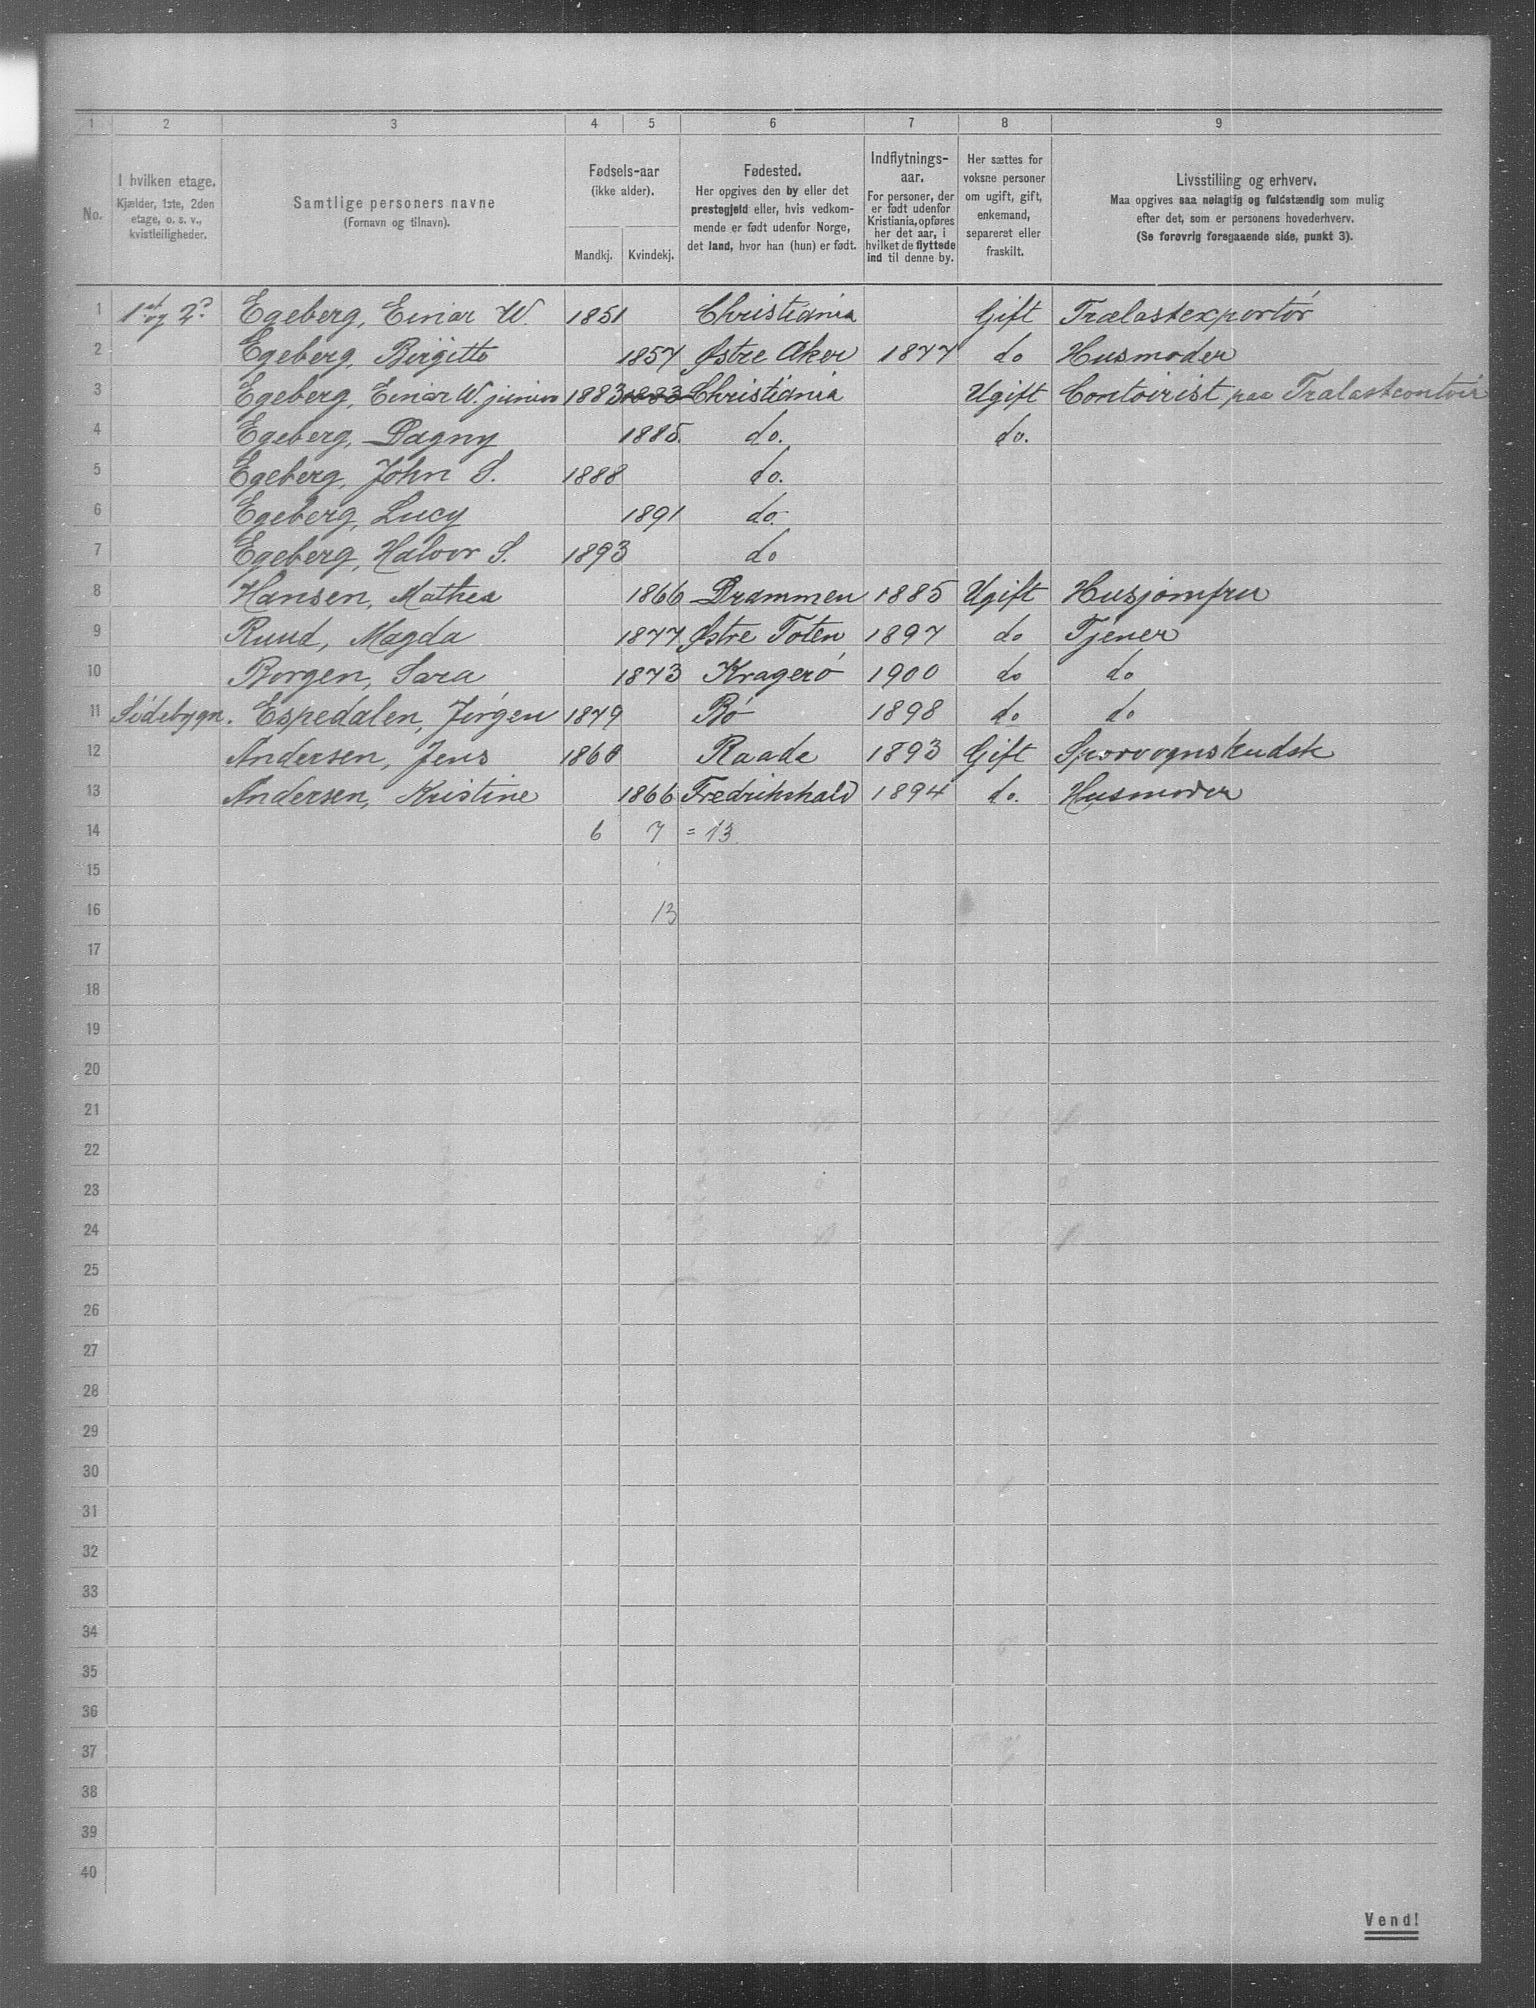 1 2 3 4 5 6 7 8 9
No.
I hvilken etage.
Kjælder, 1ste, 2den
etage, o. s. v.,
kvistleiligheder.
Samtlige personers navne
(Fornavn og tilnavn).
Fødsels-aar
(ikke alder).
Mandkj. Kvindekj.
Fødested.
Her opgives den by eller det
prestegjeld eller, hvis vedkom-
mende er født udenfor Norge,
det land, hvor han (hun) er født.
Indflytnings-
aar.
For personer, der
er født udenfor
Kristiania, opføres
her det aar, i
hvilket de flyttede
ind til denne by.
Her sættes for
voksne personer
om ugift, gift,
enkemand,
separeret eller
fraskilt.
Livsstilling og erhverv.
Maa opgives saa nøiagtig og fuldstændig som mulig
efter det, som er personens hovederhverv.
(Se forøvrig foregaaende side, punkt 3).
1 1st og 2? Egeberg, Einar W. 1851 Christiania Gift Trælastexportør
2 Egeberg, Birgitte 1857 Østre Aker 1877 do Husmoder
3 Egeberg, Einar W. junior 1883 1883 Christiania Ugift Contoirist paa Trælastcontoir
4 Egeberg, Dagny 1885. do. do.
5 Egeberg, John S. 1888 do.
6 Egeberg, Lucy 1891 do.
7 Egeberg, Halvor S. 1893 do
8 Hansen, Mathea 1866 Drammen 1885 Ugift Husjomfru
9 Ruud, Magda 1877 Østre Toten 1897 do Tjener
10 Borgen, Sara 1873 Kragerø 1900 do do
11 Sidebygn. Espedalen, Jørgen 1879 Bø 1898 do do
12 Andersen, Jens 1860 Raade 1893 Gift Sporvognskudsk
13 Andersen, Kristine 1866 Fredrikshald 1894 do. Husmoder
14 6 7 = 13
15
16 13
17
18
19
20
21
22
23
24
25
26
27
28
29
30
31
32
33
34
35
36
37
38
39
40
Vend!